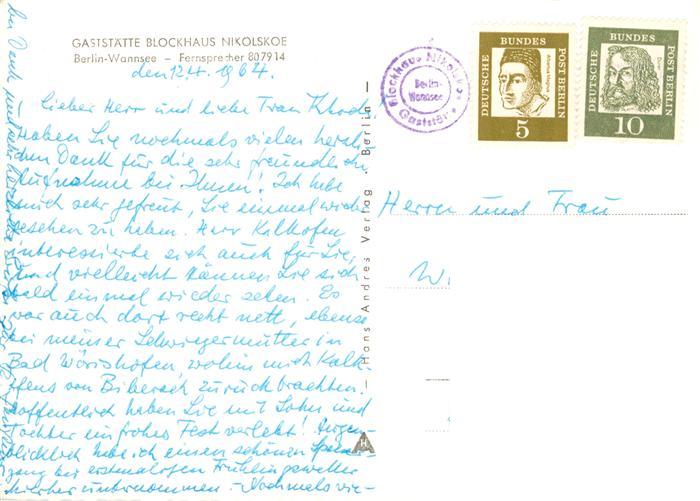 GASTSTÄTTE BLOCKHAUS NIKOLSKOE
Berlin-Wannsee – Fernsprecher 80 79 14
den 12.4.1964.
Lieber Herr und liebe Frau
Haben Sie nochmals vielen herzli-
chen Dank für die sehr freundliche
Aufnahme bei Ihnen! Ich habe
mich sehr gefreut, Sie einmal wieder
gesehen zu haben. Herr Kalkofen
interessierte sich auch für Sie,
und vielleicht können Sie sich
bald einmal wieder sehen. Es
war auch dort recht nett, ebenso
bei meiner Schwiegermutter in
Bad Wörishofen, wohin mich Kalk-
ofens von Biberach zurück brachten.
Hoffentlich haben Sie mit Sohn und
Tochter ein frohes Fest verlebt! Augen-
blicklich habe ich einen schönen Spazier-
gang bei erstmaligem Frühlingswetter
hierher unternommen. – Nochmals vie-
len Dank und sehr herzliche
Hans Andres Verlag · Berlin
HA
Blockhaus Nikolskoe
Berlin-
Wannsee
Gaststätte
DEUTSCHE BUNDES POST BERLIN
Albertus Magnus
5
DEUTSCHE BUNDES POST BERLIN
10
Herrn und Frau
W